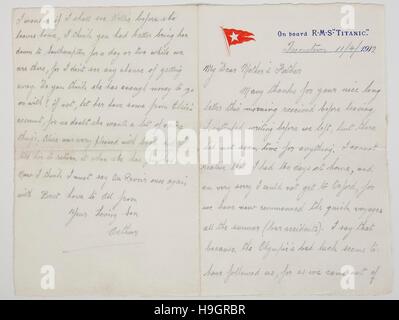 On board R·M·S "TITANIC."
Queenstown 11/4/1912
My Dear Mother & Father
Many thanks for your nice long
letter this morning received before leaving
I intended writing before we left, but there
did not seem time for anything. I cannot
realize that I had ten days at home, and
am very sorry I could not get to Oxford, for
we have now commenced the quick voyages
all the summer (bar accidents). I say that
because the Olympic's bad luck seems to
have followed us, for as we came out of
I wonder if I shall see Nellie before she
leaves home, I think you had better bring her
down to Southampton for a day or two while we
are there, for I don't see any chance of getting
away. Do you think she has enough money to go
on with? if not, let her have some from
account, for no doubt she wants a lot of
things, was very pleased with
tell her to return it when she has
Now I think I must say Au Revoir once again
with Best love to All from
Your loving son
Arthur
alamy
alamy stock photo
H9GRBR
www.alamy.com